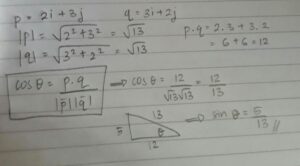 p = 2i + 3j
q = 3i + 2j
|p| = √2² + 3² = √13
p . q = 2.3 + 3.2
|q| = √3² + 2² = √13
= 6 + 6 = 12
cos θ = p . q / |p̄| |q̄|
⇒ cos θ = 12 / √13 √13 = 12 / 13
13
5
θ
12
⇒ sin θ = 5 / 13 //